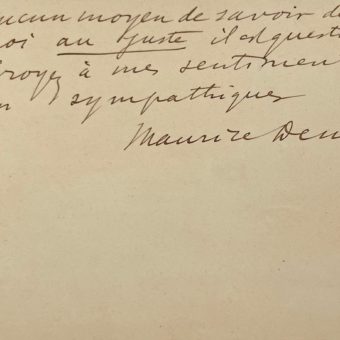 ucun moyen de savoir d
oi au juste il est questi
royez à mes sentimen
n sympathiques
Maurice Den